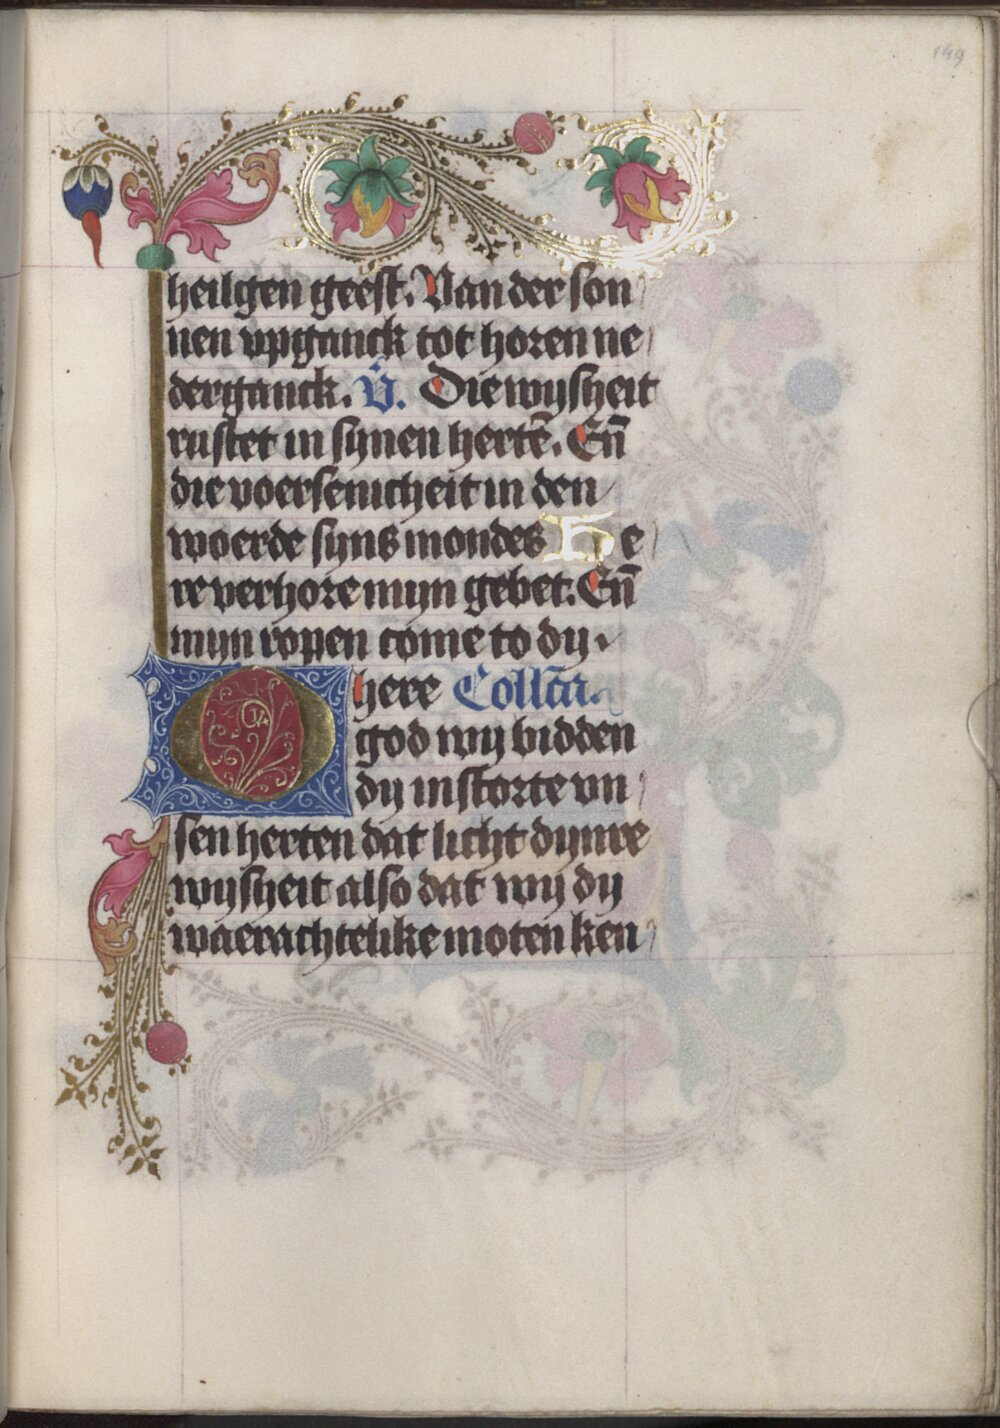 149
heilgen geest. Van der son
nen vpganck tot horen ne
derganck. V̄. Die wysheit
rustet in synen hertē. En̄
die voersenicheit in den
woerde syns mondes He
re verhore myn gebet. En̄
myn ropen come to dy.
O here Coll̄ca.
god wy bidden
dy instorte vn
sen herten dat licht dynre
wysheit also dat wy dy
waerachtelike moten ken